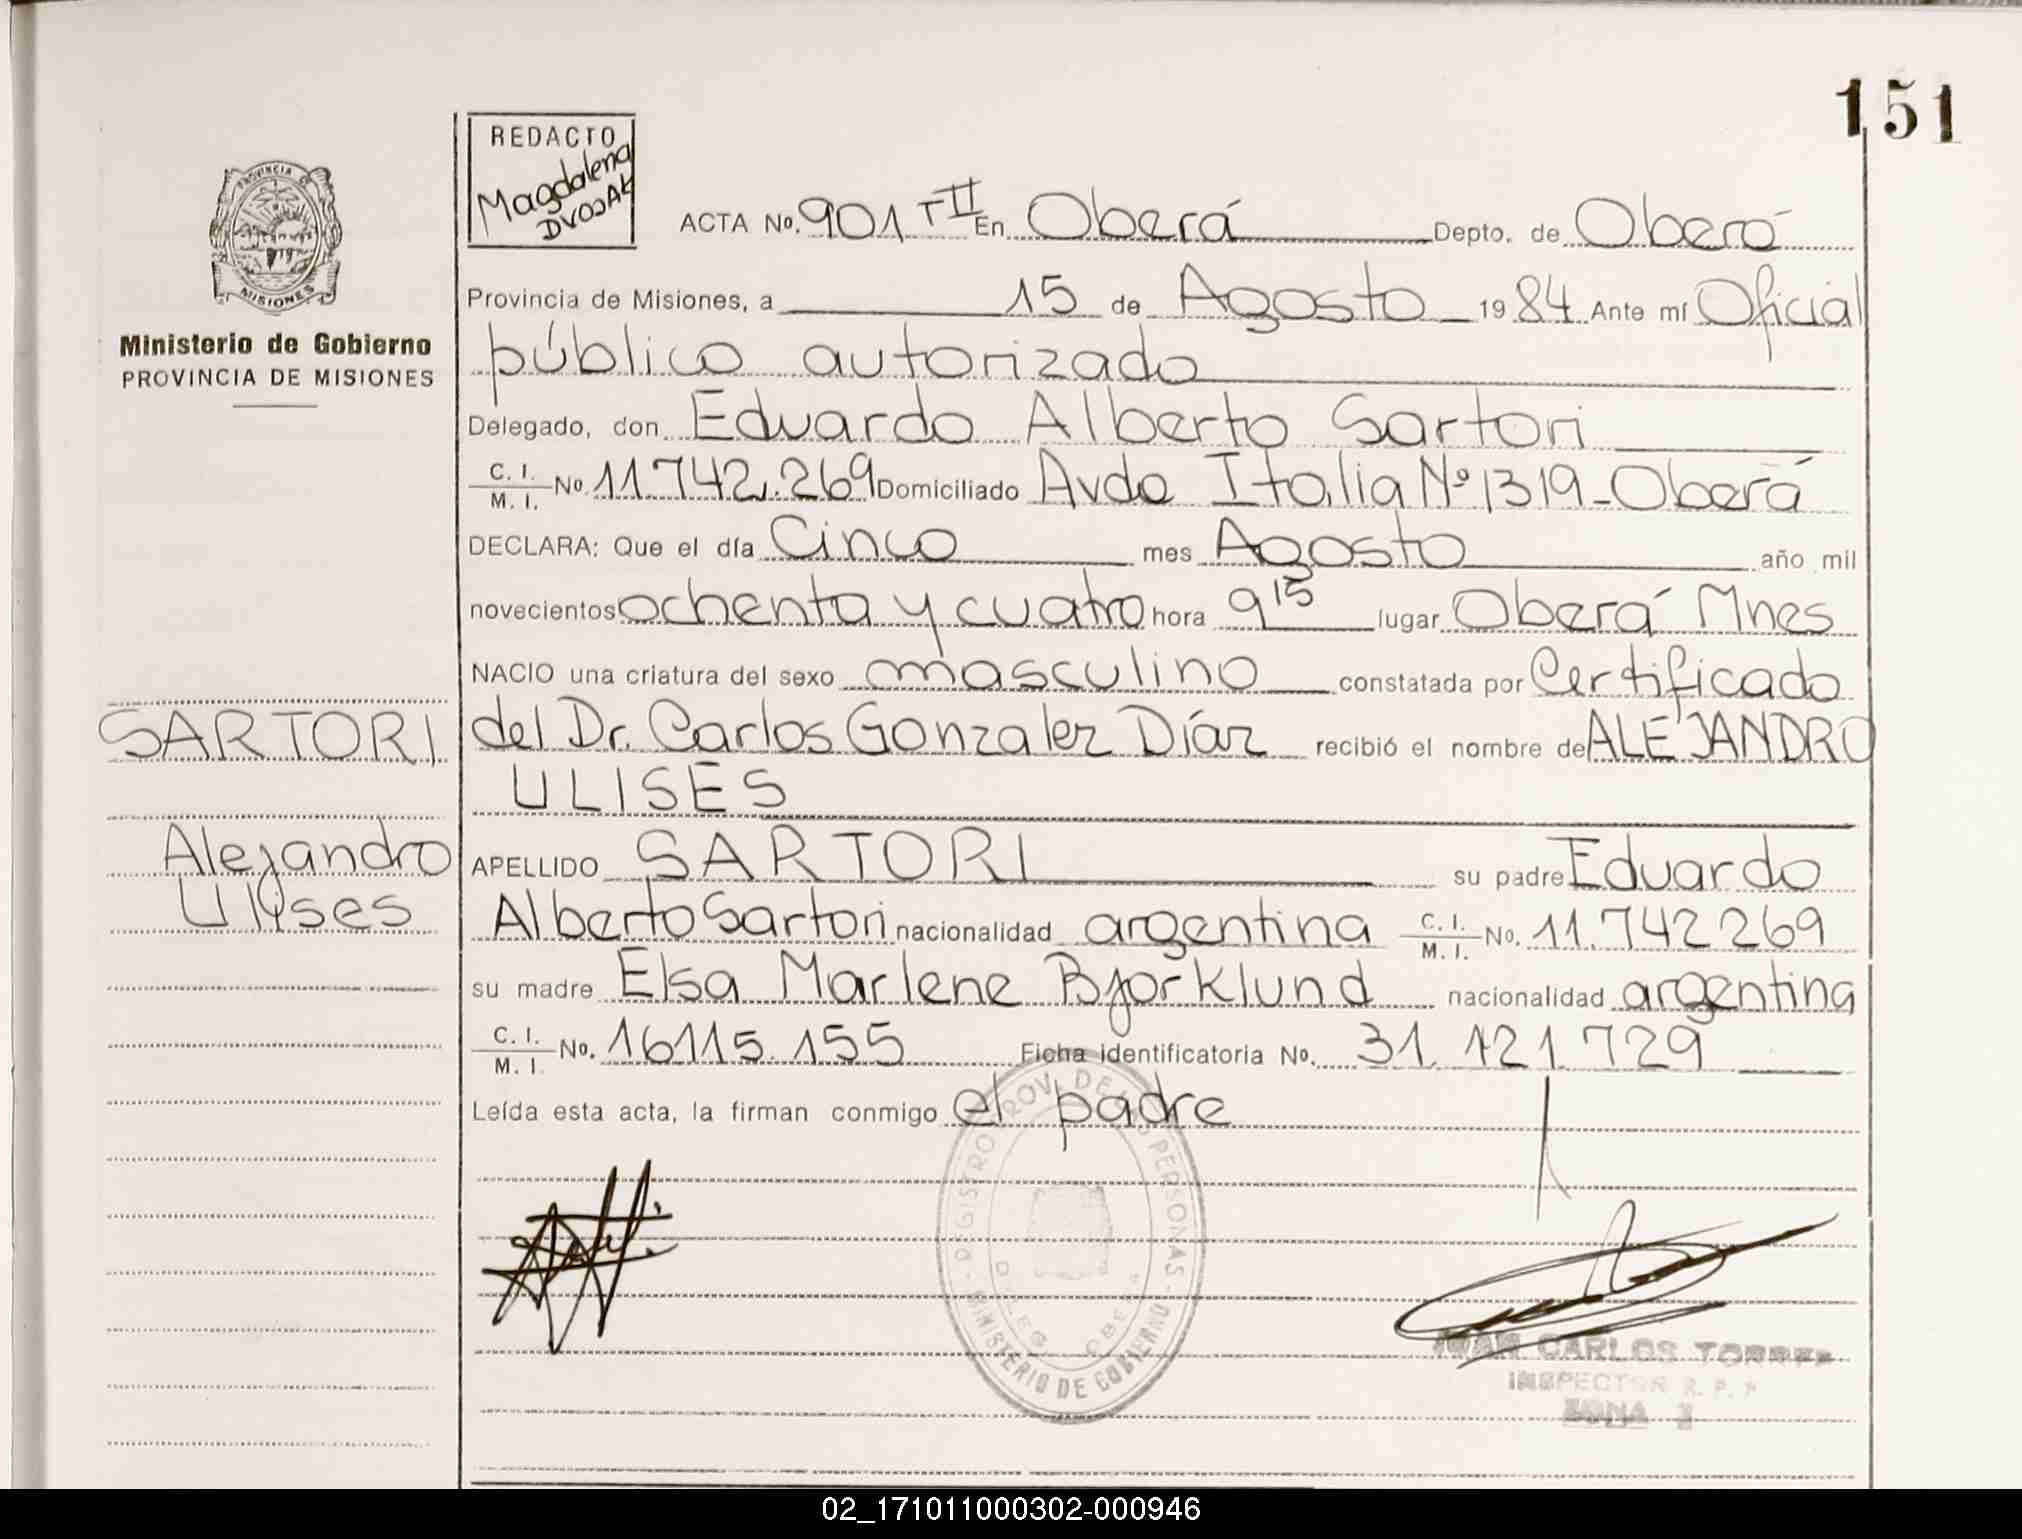 151
PROVINCIA DE
MISIONES
Ministerio de Gobierno
PROVINCIA DE MISIONES
REDACTO
Magdalena
ACTA No. 901 T II En Oberá Depto. de Oberá
Provincia de Misiones, a 15 de Agosto 1984 Ante mí Oficial
público autorizado
Delegado, don Eduardo Alberto Sartori
C. I. / M. I. No. 11.742.269 Domiciliado Avda Italia Nº 1319 - Oberá
DECLARA: Que el día Cinco mes Agosto año mil
novecientos ochenta y cuatro hora 9 15 lugar Oberá Mnes
NACIO una criatura del sexo masculino constatada por Certificado
SARTORI
del Dr. Carlos Gonzalez Díaz recibió el nombre de ALEJANDRO
ULISES
Alejandro
Ulises
APELLIDO SARTORI su padre Eduardo
Alberto Sartori nacionalidad argentina C. I. / M. I. No. 11.742269
su madre Elsa Marlene Bjorklund nacionalidad argentina
C. I. / M. I. No. 16115.155 Ficha identificatoria No. 31.121.729
Leída esta acta, la firman conmigo el padre
REGISTRO PROV. DE LAS PERSONAS
MINISTERIO DE GOBIERNO
JUAN CARLOS TORRES
INSPECTOR R. P. P.
ZONA
02_171011000302-000946